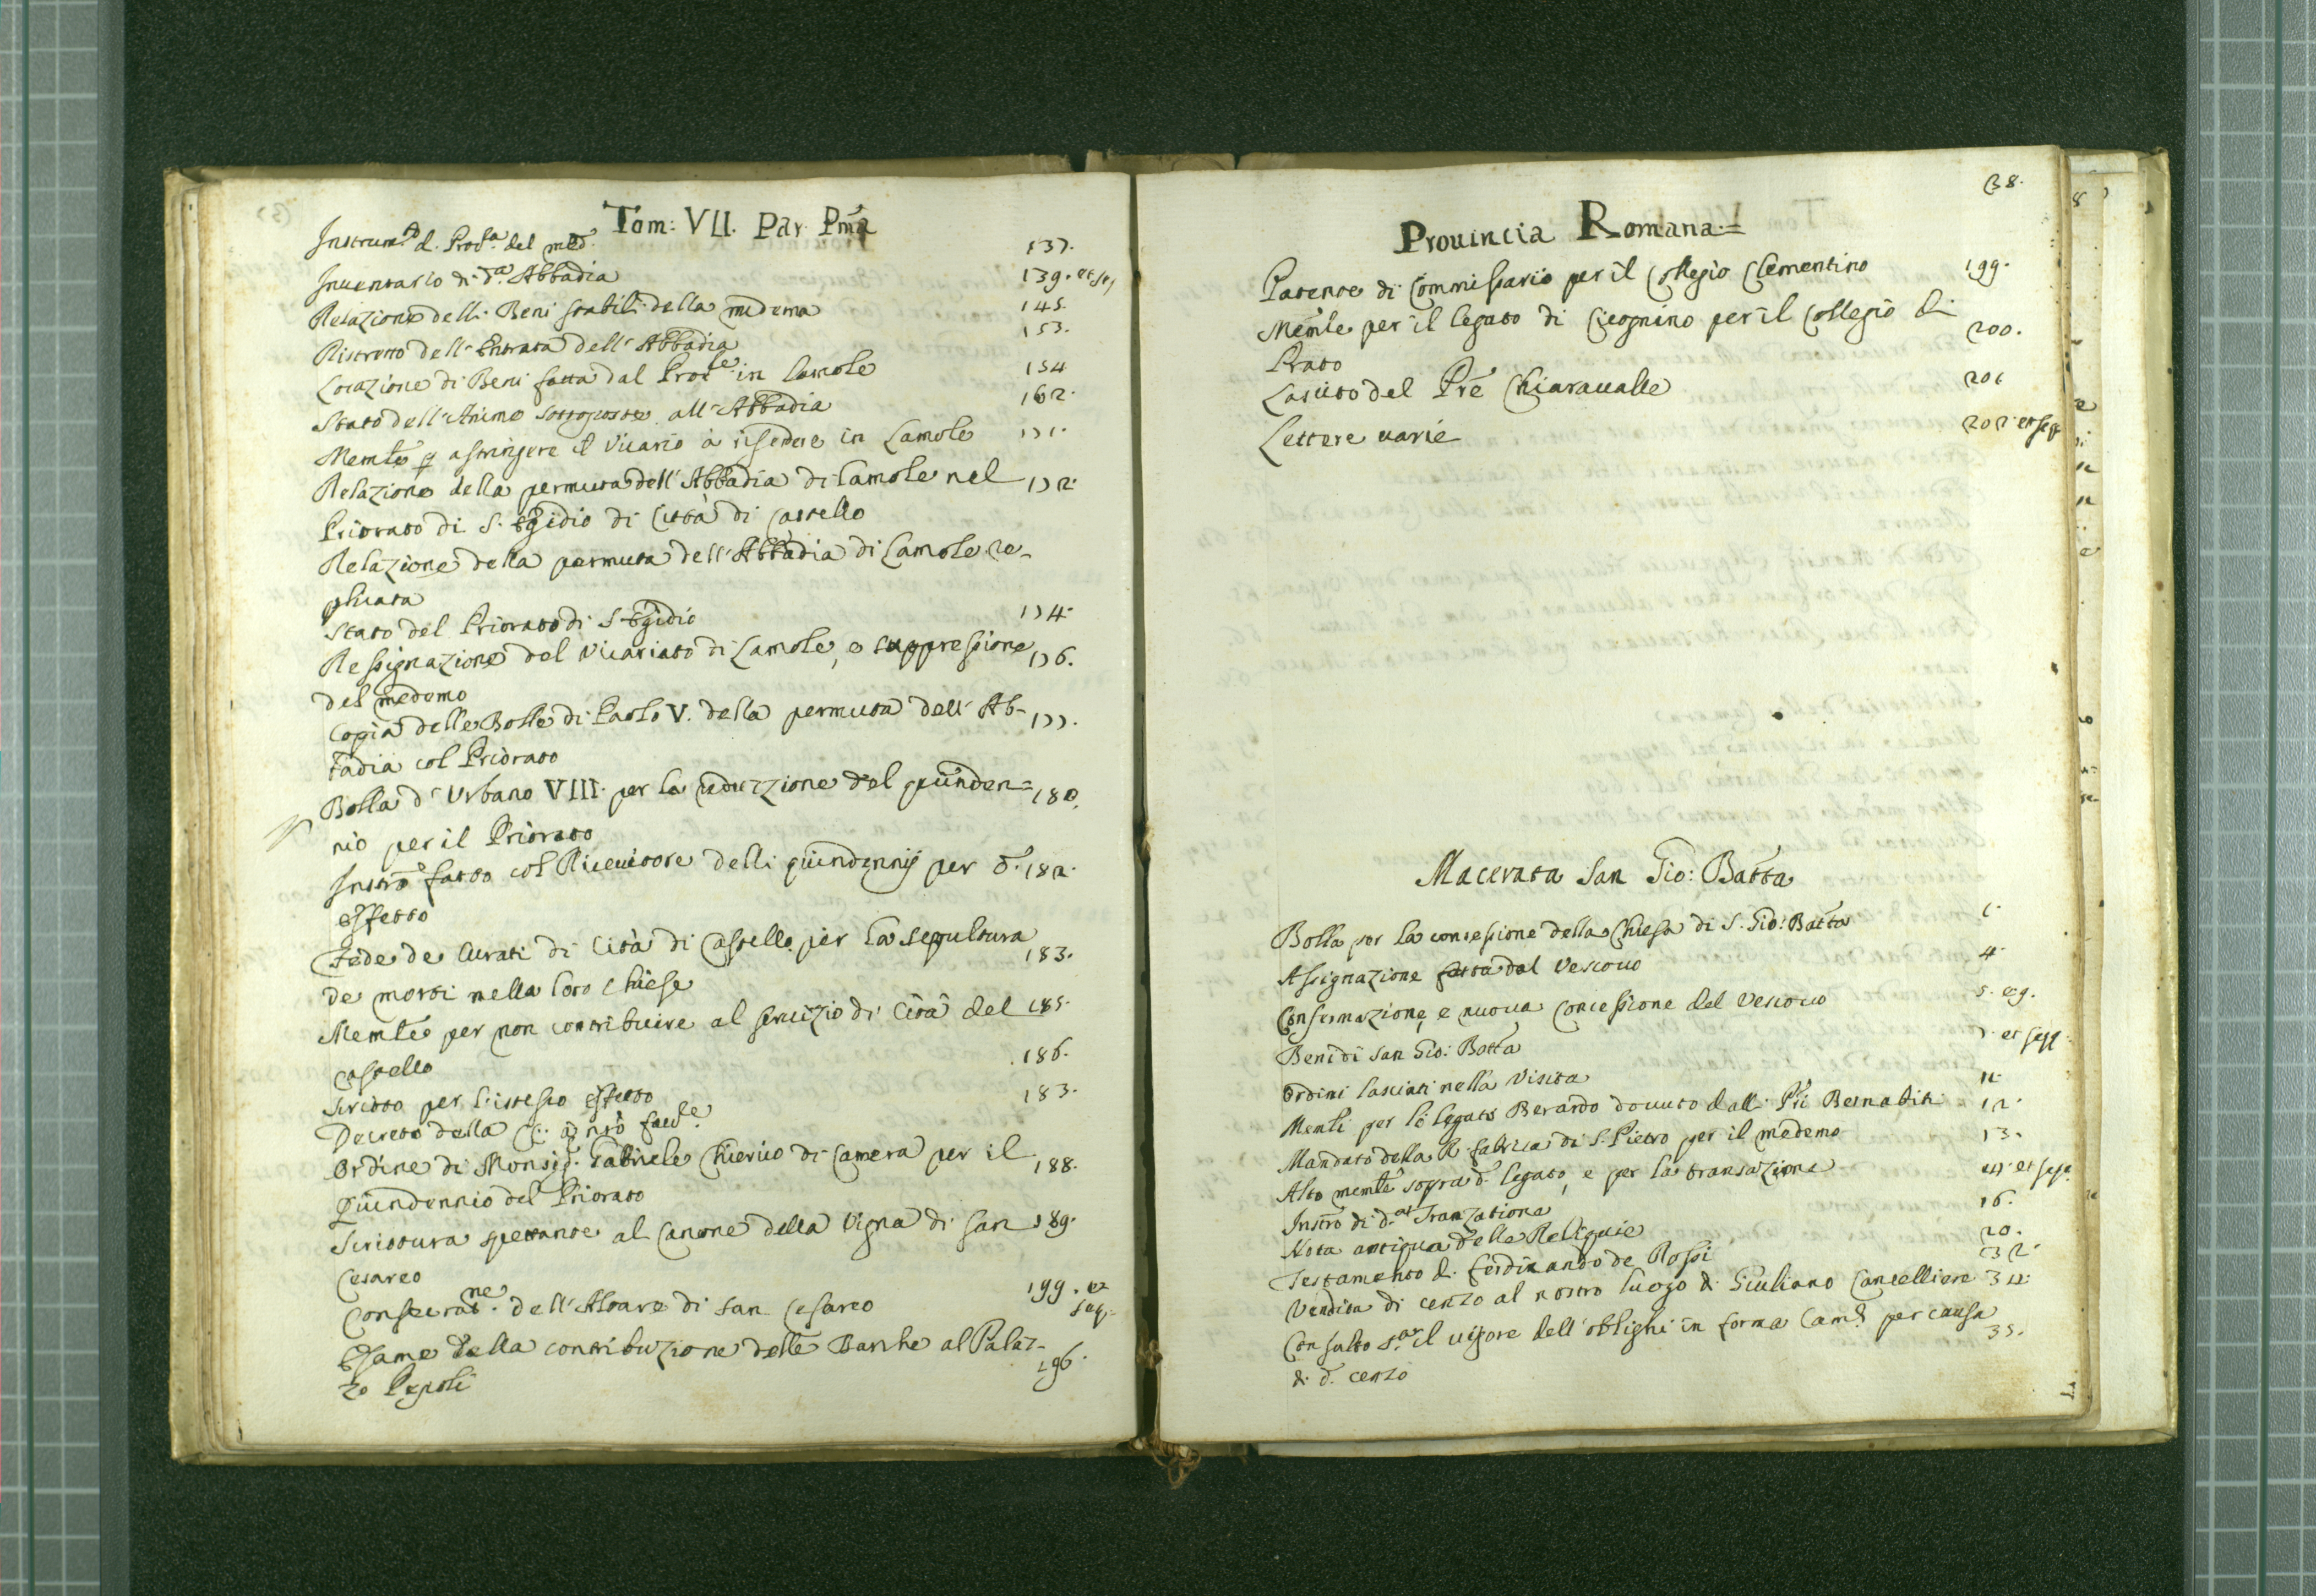 Tom: VII. Par. Pma
Instrumto d. Proda del med.o 137.
Inventario di da Abbadia 139. et seq
Relazione delli Beni stabili della medema 145.
Ristretto dell'Entrata dell'Abbadia 153.
Locazione di Beni fatta dal Prole in Lamole 154
Stato dell'Anime sottoposte all'Abbadia 162.
Memle p astringere il Vicario à risedere in Lamole 171.
Relazione della permuta dell'Abbadia di Lamole nel 172.
Priorato di S. Egidio di Città di Castello
Relazione della permuta dell'Abbadia di Lamole re-
plicata
Stato del Priorato di S. Egidio 174.
Ressignazione del Vicariato di Lamole, e suppressione 176.
del medemo
Copia delle Bolle di Paolo V. della permuta dell'Ab- 177.
badia col Priorato
Bolla d'Urbano VIII. per la reduzzione del quinden= 180.
nio per il Priorato
Instro fatto col Ricevitore delli quindennij per d. 182.
effetto
Fede de Curati di Città di Castello per la sepultura 183.
de morti nella loro Chiese
Memle per non contribuire al servizio di Città del 185.
Castello
Scritto per l'istesso effetto 186.
Decreto della C. à nrò favle 183.
Ordine di Monsig. Gabriele Chierico di Camera per il 188.
Quindennio del Priorato
Scrittura spettante al Canone della Vigna di San 189.
Cesareo
Consecrane. dell'Altare di San Cesareo 199. et seq.
Esame della contribuzione delle Banche al Palaz- 196.
zo Pepoli
38.
Provincia Romana=
Patente di Commissario per il Collegio Clementino 199.
Memle per il legato di Cicognino per il Collegio di 200.
Prato
Lascito del Pre Chiaravalle 201
Lettere varie 202. et seq
Macerata San Gio: Batta
Bolla per la concessione della Chiesa di S. Gio: Batta 1.
Assignazione fatta dal Vescovo 4.
Confirmazione, e nuova concessione del Vescovo 5. e 9.
Beni di San Gio: Batta 7. et seqq.
Ordini lasciati nella Visita 11.
Memli per lo legato Berardo dovuto dalli Pri Bernabiti 12.
Mandato della R. fabrica di S. Pietro per il medemo 13.
Alto memle sopra d. legato, e per la transazione et seqq.
Instro di da Tranzatione 16.
Nota antiqua delle Reliquie 20.
Testamento di Ferdinando de Rossi 32.
Vendita di cenzo al nostro luogo di Giuliano Cancelliere 34.
Consulto sa il vigore dell'oblighi in forma Cam. per causa 35.
di d. cenzo